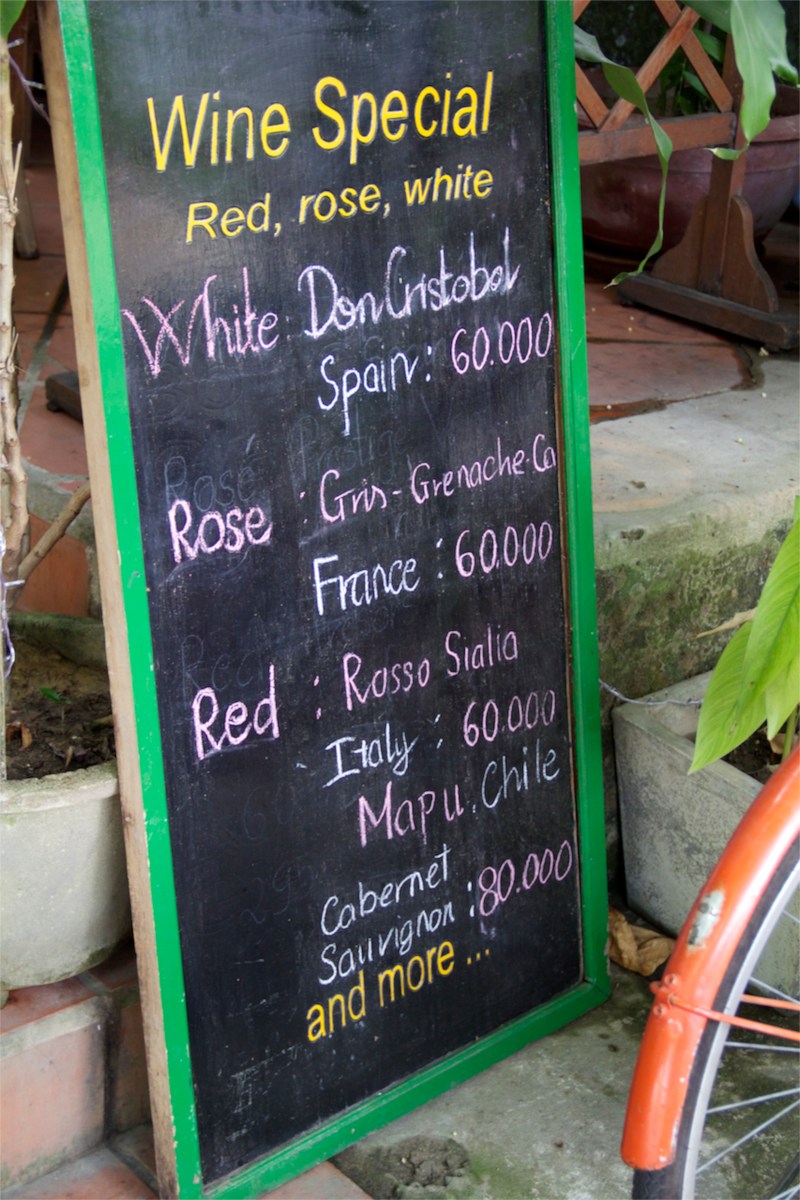 Wine Special
Red, rose, white
White Don Cristobal
Spain: 60.000
Rose : Gris-Grenache.Ca
France : 60.000
Red : Rosso Sialia
Italy : 60.000
Mapu. Chile
Cabernet
Sauvignon : 80.000
and more ...